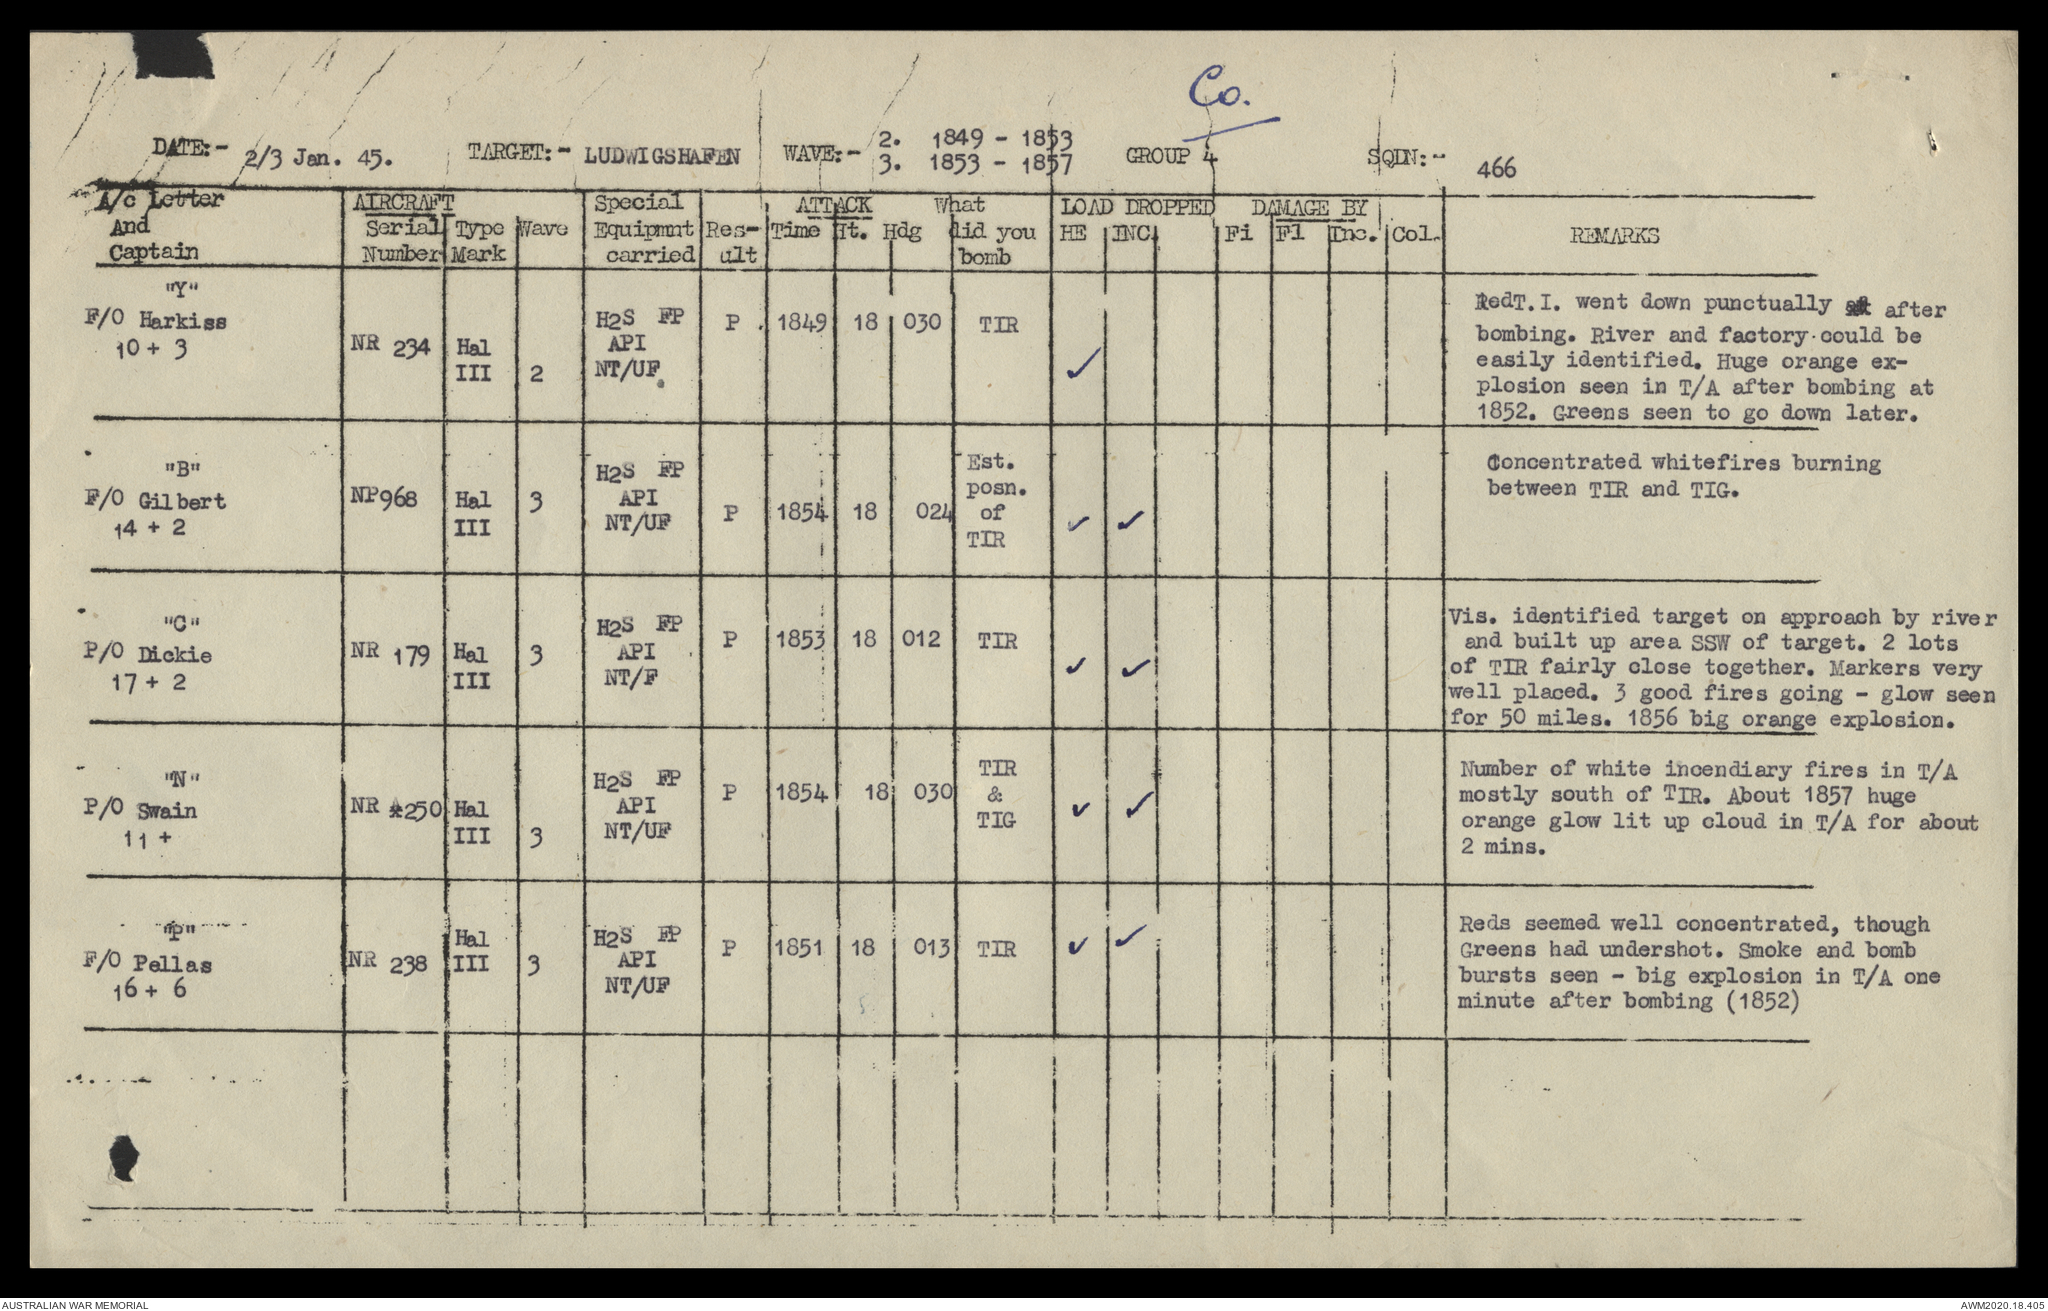 Co.
DATE:- 2/3 Jan. 45. TARGET:- LUDWIGSHAFEN WAVE:- 2. 1849 - 1853 GROUP 4 SQDN:- 466
3. 1853 - 1857
A/c Letter And Captain AIRCRAFT Serial Number Type Mark Wave Special Equipmnt carried Res-ult ATTACK Time Ht. Hdg What did you bomb LOAD DROPPED HE INC. DAMAGE BY Fi Fl Inc. Col. REMARKS
"Y"
F/O Harkiss
10 + 3
NR 234
Hal
III
2
H2S FP
API
NT/UF
P 1849 18 030 TIR
✓
RedT.I. went down punctually after
bombing. River and factory could be
easily identified. Huge orange ex-
plosion seen in T/A after bombing at
1852. Greens seen to go down later.
"B"
F/O Gilbert
14 + 2
NP968
Hal
III
3
H2S FP
API
NT/UF
P 1854 18 024
Est.
posn.
of
TIR
✓ ✓
Concentrated whitefires burning
between TIR and TIG.
"C"
P/O Dickie
17 + 2
NR 179
Hal
III
3
H2S FP
API
NT/F
P 1853 18 012 TIR
✓ ✓
Vis. identified target on approach by river
and built up area SSW of target. 2 lots
of TIR fairly close together. Markers very
well placed. 3 good fires going - glow seen
for 50 miles. 1856 big orange explosion.
"N"
P/O Swain
11 +
NR 250
Hal
III
3
H2S FP
API
NT/UF
P 1854 18 030
TIR
&
TIG
✓ ✓
Number of white incendiary fires in T/A
mostly south of TIR. About 1857 huge
orange glow lit up cloud in T/A for about
2 mins.
"P"
F/O Pellas
16 + 6
NR 238
Hal
III
3
H2S FP
API
NT/UF
P 1851 18 013 TIR
✓ ✓
Reds seemed well concentrated, though
Greens had undershot. Smoke and bomb
bursts seen - big explosion in T/A one
minute after bombing (1852)
AUSTRALIAN WAR MEMORIAL AWM2020.18.405